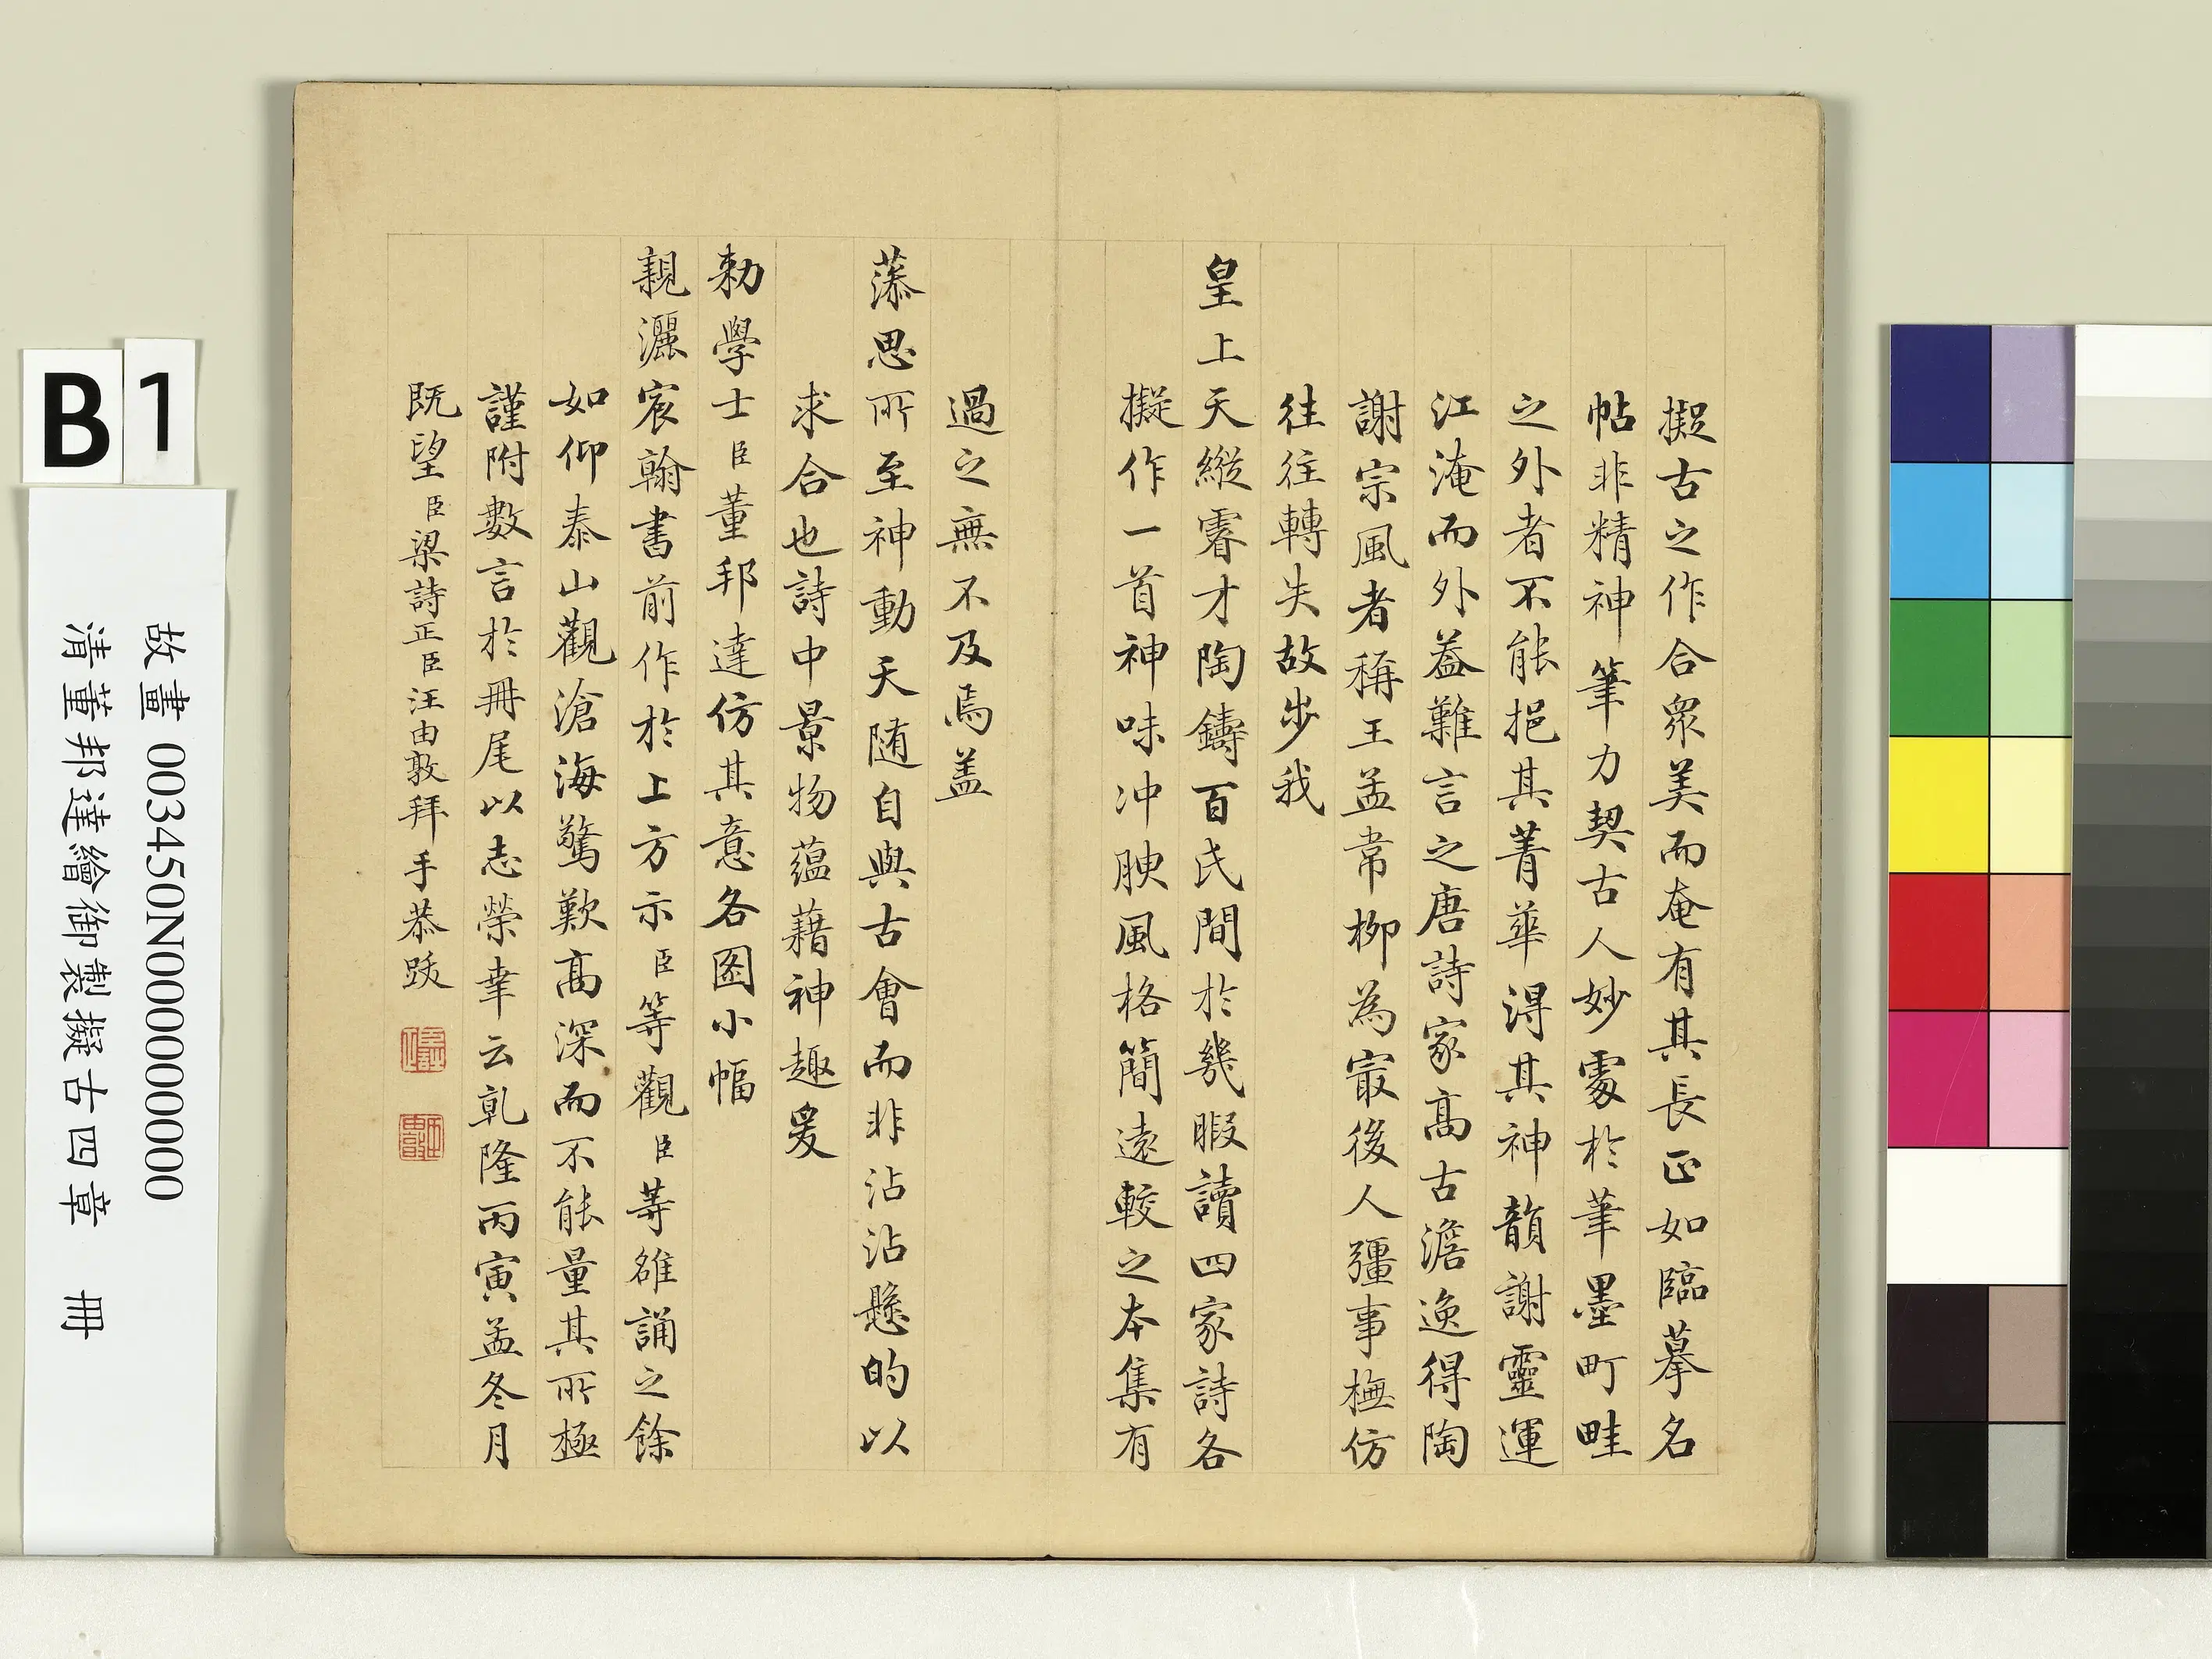 擬古之作合衆美而奄有其長正如臨摹名
帖非精神筆力契古人妙處於筆墨町畦
之外者不能挹其菁華得其神韻謝靈運
江淹而外蓋難言之唐詩家高古澹逸得陶
謝宗風者稱王孟韋柳為㝡後人彊事橅仿
往往轉失故步我
皇上天縱睿才陶鑄百氏間於幾暇讀四家詩各
擬作一首神味沖腴風格簡遠較之本集有
過之無不及焉盖
藻思所至神動天随自與古會而非沾沾懸的以
求合也詩中景物蘊藉神趣爰
勅學士臣董邦達仿其意各图小幅
親灑宸翰書前作於上方示臣等觀臣等雒誦之餘
如仰泰山觀滄海驚歎高深而不能量其所極
謹附數言於冊尾以志榮幸云乾隆丙寅孟冬月
既望臣梁詩正臣汪由敦拜手恭跋
B
1
故畫 003450N000000000
清董邦達繪御製擬古四章 冊